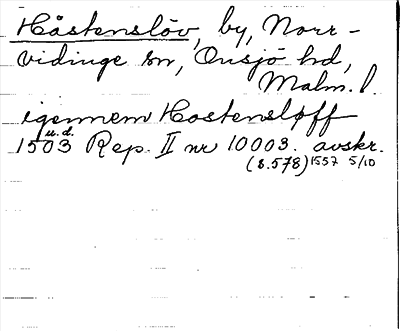 Håstenslöv, by, Norr-
vidinge sn, Onsjö hd,
Malm. l.
igennem Hostensløff
u.d.
1503 Rep. II nr 10003. avskr.
(s. 578) 1557 5/10